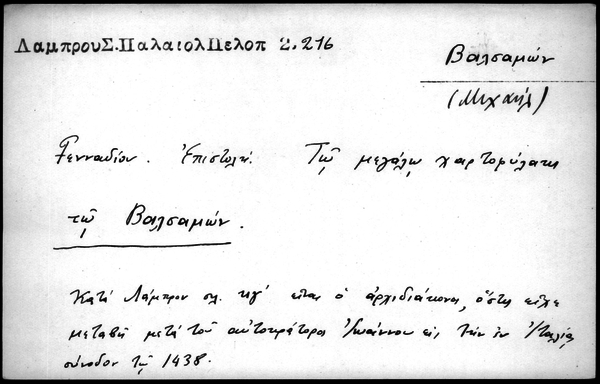 ΛαμπρουΣ.ΠαλαιολΠελοπ 2.216
Βαλσαμών
(Μιχαήλ)
Γενναδίου. Ἐπιστολή. Τῷ μεγάλῳ χαρτοφύλακι
τῷ Βαλσαμών.
Κατά Λάμπρον σελ. κηʹ εἶναι ὁ ἀρχιδιάκονος, ὅστις εἶχε
μεταβῆ μετά τοῦ αὐτοκράτορος Ἰωάννου εἰς τήν ἐν Ἰταλίᾳ
σύνοδον τῷ 1438.